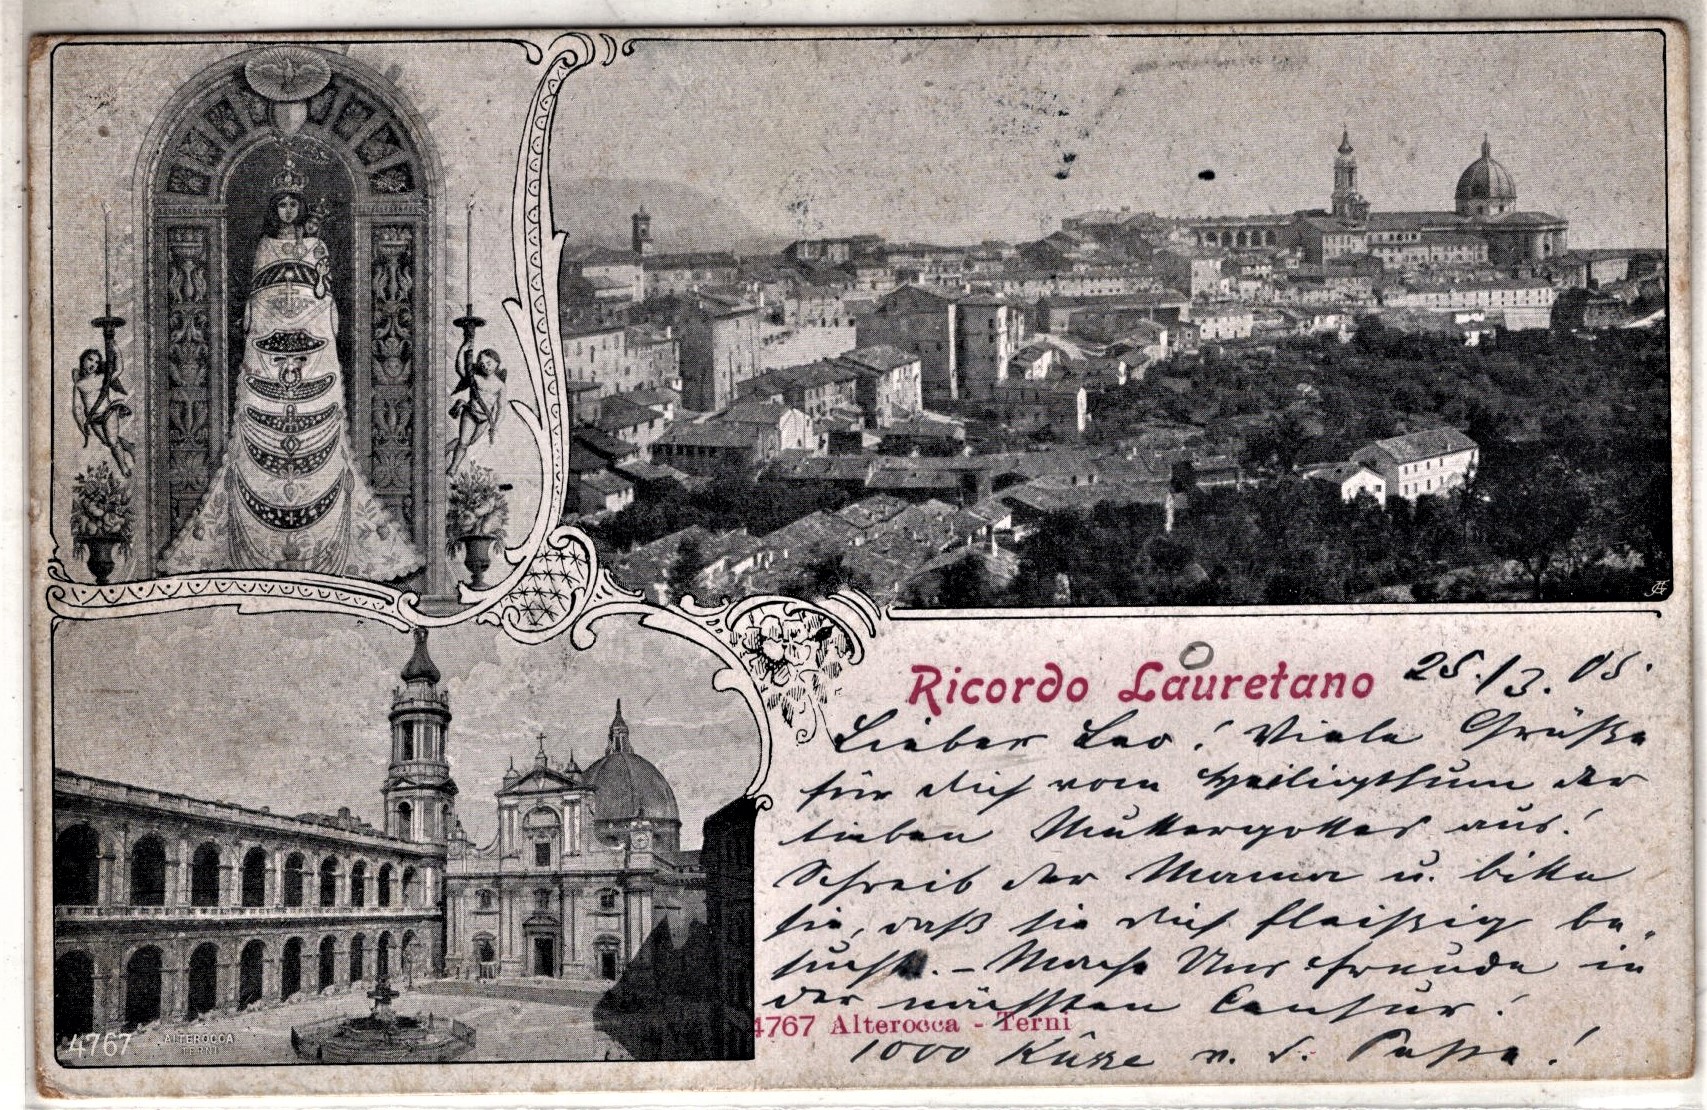 Ricordo Lauretano 25./3. 05.
Lieber Leo! Viele Grüße
für dich vom Heiligthum der
lieben Muttergottes aus!
Schreib der Mama u. bitte
sie, daß sie dich fleißig be-
sucht. – Mach Uns Freude in
der nächsten Censur!
4767 Alterocca - Terni
1000 Küsse v. d. Papa!
4767 ALTEROCCA
TERNI